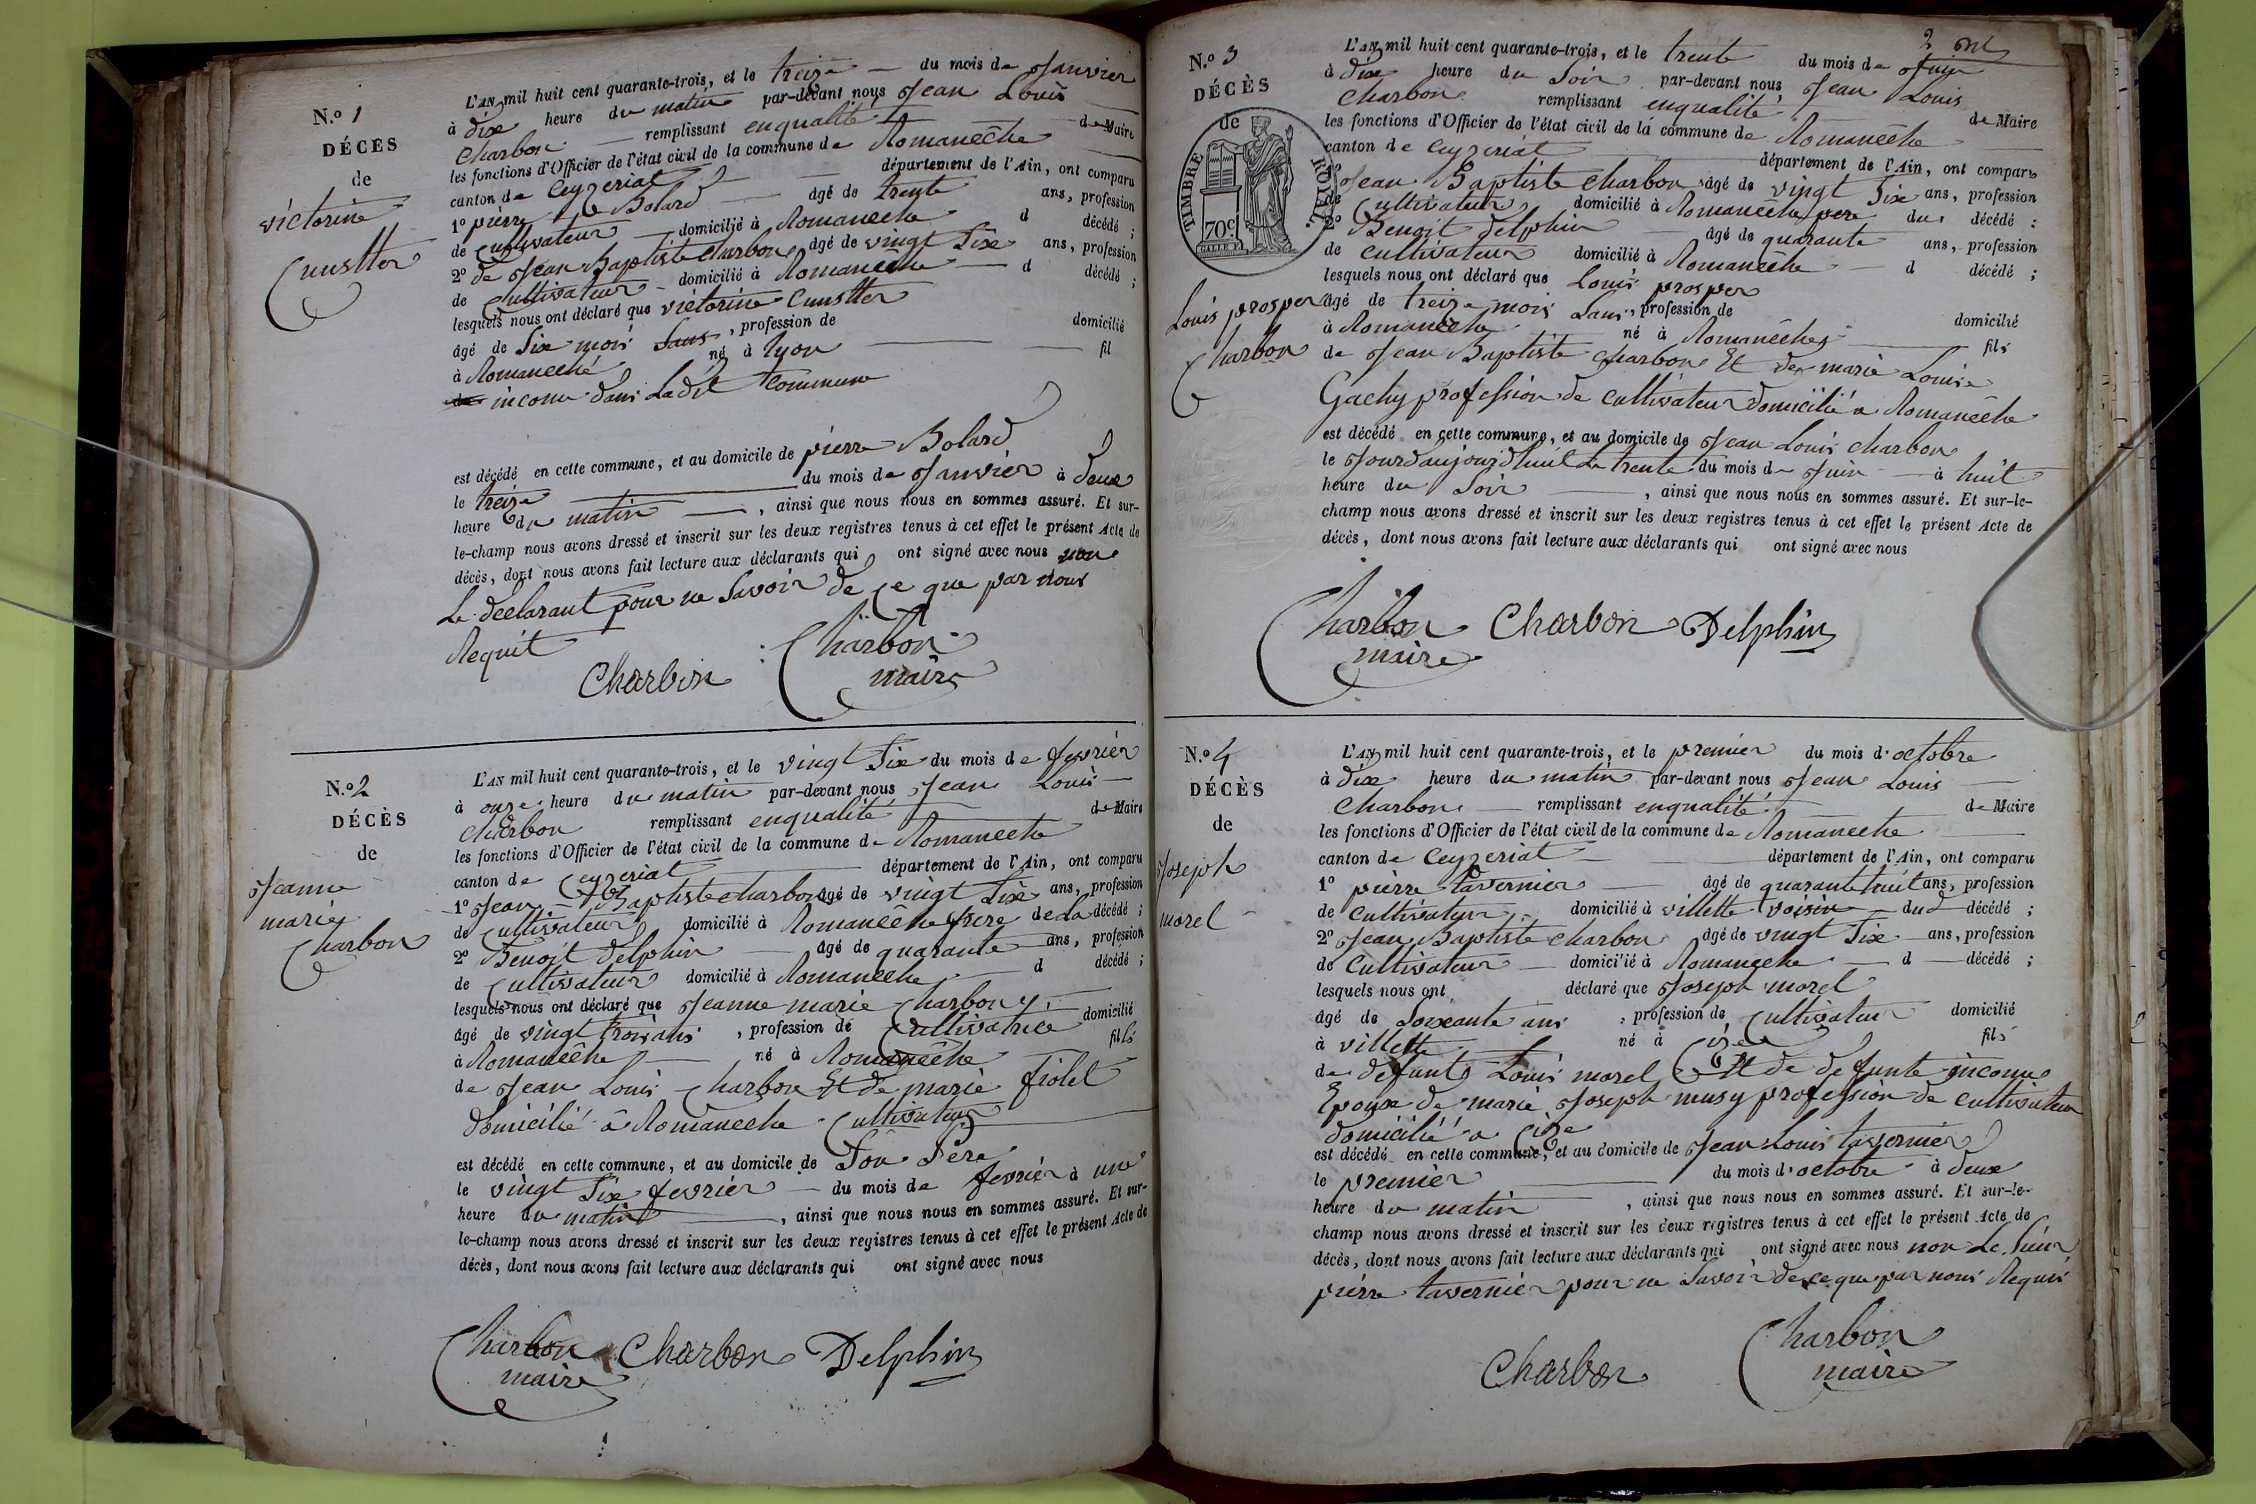 N.º 1
DÉCÈS
de
victorine
Cunstter
L'AN mil huit cent quarante-trois, et le treize du mois de Janvier
à dix heure du matin par-devant nous Jean Louis
Charbon remplissant enqualité de Maire
les fonctions d'Officier de l'état civil de la commune de Romanêche
canton de Ceyzeriat département de l'Ain, ont comparu
1º pierre Bolard agé de trente ans, profession
de Cultivateur domicilié à Romaneche d décédé ;
2º de Jean Baptiste Charbon agé de vingt Six ans, profession
de Cultivateur domicilié à Romaneche d décédé ;
lesquels nous ont déclaré que victorine Cunstter
âgé de Six mois Sans, profession de domicilié
à Romaneche né à Lyon fil
de inconu dans Ladit Commune
est décédé en cette commune, et au domicile de pierre Bolard
le treize du mois de Janvier à deux
heure du matin, ainsi que nous nous en sommes assuré. Et sur-
le-champ nous avons dressé et inscrit sur les deux registres tenus à cet effet le présent Acte de
décès, dont nous avons fait lecture aux déclarants qui ont signé avec nous non
Le déclarant pour ne Savoir de ce que par nous
Requit
Charbon Charbon
maire
N.º 2
DÉCÈS
de
Jeanne
marie
Charbon
L'AN mil huit cent quarante-trois, et le vingt Six du mois de fevrier
à onze heure du matin par-devant nous Jean Louis
Charbon remplissant enqualité de Maire
les fonctions d'Officier de l'état civil de la commune de Romaneche
canton de Ceyzeriat département de l'Ain, ont comparu
1º Jean Baptiste charbon agé de vingt Six ans, profession
de Cultivateur domicilié à Romanêche frere de La décédé ;
2º Benoit Delphin agé de quarante ans, profession
de Cultivateur domicilié à Romaneche d décédé ;
lesquels nous ont déclaré que Jeanne marie Charbon
âgé de vingt trois ans, profession de Cultivatrice domicilié
à Romanêche né à Romanêche fils
de Jean Louis Charbon Et de marie friolet
domicilié à Romaneche Cultivateur
est décédé en cette commune, et au domicile de Son Père
le vingt Six fevrier du mois de fevrier à une
heure du matin, ainsi que nous nous en sommes assuré. Et sur-
le-champ nous avons dressé et inscrit sur les deux registres tenus à cet effet le présent Acte de
décès, dont nous avons fait lecture aux déclarants qui ont signé avec nous
Charbon Charbon Delphin
maire
2
N.º 3
DÉCÈS
de
TIMBRE ROYAL.
70c
Louis prosper
Charbon
L'AN mil huit cent quarante-trois, et le trente du mois de Juin
à dix heure du Soir par-devant nous Jean Louis
Charbon remplissant enqualité de Maire
les fonctions d'Officier de l'état civil de la commune de Romanêche
canton de Ceyzeriat département de l'Ain, ont comparu
1º Jean Baptiste Charbon agé de vingt Six ans, profession
de Cultivateur domicilié à Romanêche pere du décédé ;
2º Benoit delphin agé de quarante ans, profession
de cultivateur domicilié à Romanêche d décédé ;
lesquels nous ont déclaré que Louis prosper
âgé de treize mois Sans, profession de domicilié
à Romanêche né à Romanêche fils
de Jean Baptiste Charbon Et de marie Louise
Gachy profession de Cultivateur domicilié a Romanêche
est décédé en cette commune, et au domicile de Jean Louis Charbon
le Jourdaujourdhuit Le trente du mois de Juin à huit
heure du Soir, ainsi que nous nous en sommes assuré. Et sur-le-
champ nous avons dressé et inscrit sur les deux registres tenus à cet effet le présent Acte de
décès, dont nous avons fait lecture aux déclarants qui ont signé avec nous
Charbon Charbon Delphin
maire
N.º 4
DÉCÈS
de
Joseph
morel
L'AN mil huit cent quarante-trois, et le premier du mois d'octobre
à dix heure du matin par-devant nous Jean Louis
Charbon remplissant enqualité de Maire
les fonctions d'Officier de l'état civil de la commune de Romaneche
canton de Ceyzeriat département de l'Ain, ont comparu
1º pierre tavernier agé de quarante huit ans, profession
de Cultivateur domicilié à villette voisin dud décédé ;
2º Jean Baptiste charbon agé de vingt Six ans, profession
de Cultivateur domicilié à Romaneche d décédé ;
lesquels nous ont déclaré que Joseph morel
âgé de Soixante ans, profession de Cultivateur domicilié
à villette né à Cize fils
de défunt Louis morel Et de defunte inconue
Epoux de marie Joseph musy profession de cultivateur
domicilié a Cize
est décédé en cette commune, et au domicile de Jean Louis tavernier
le premier du mois d'octobre à deux
heure du matin, ainsi que nous nous en sommes assuré. Et sur-le-
champ nous avons dressé et inscrit sur les deux registres tenus à cet effet le présent Acte de
décès, dont nous avons fait lecture aux déclarants qui ont signé avec nous non Le Sieur
pierre tavernier pour ne Savoir de ce que par nous Requis
Charbon Charbon
maire